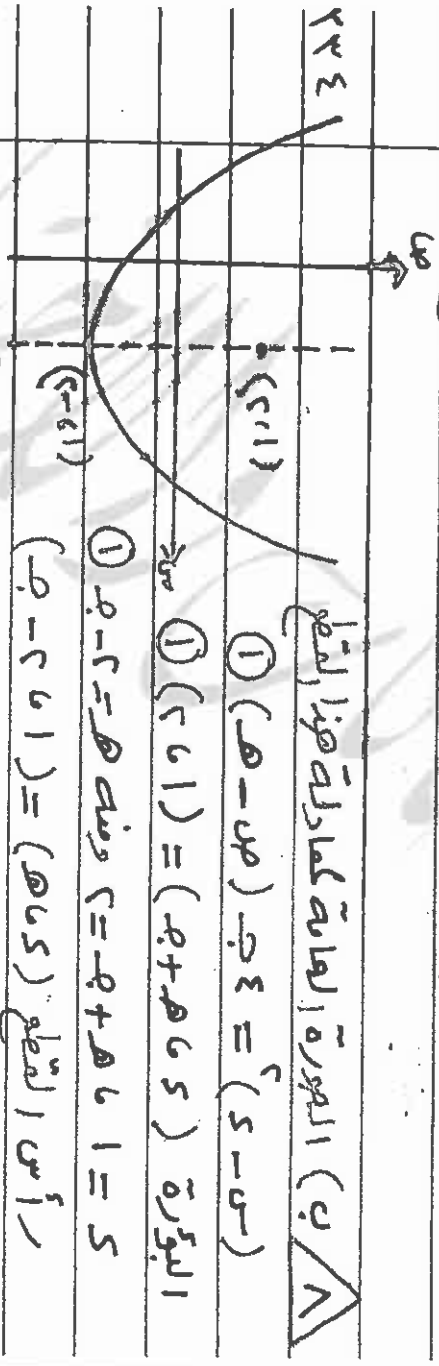 ٢٣٤
ب) الصورة العامة لمعادلة هذا القطع ٨
(س - د)² = ٤جـ (ص - هـ) ①
البؤرة (د، هـ + جـ) = (١، ٢) ①
د = ١، هـ + جـ = ٢ ومنه هـ = ٢ - جـ ①
رأس القطع (د، هـ) = (١، ٢ - جـ)
ص
(١، ٢)
س
(١، -٢)